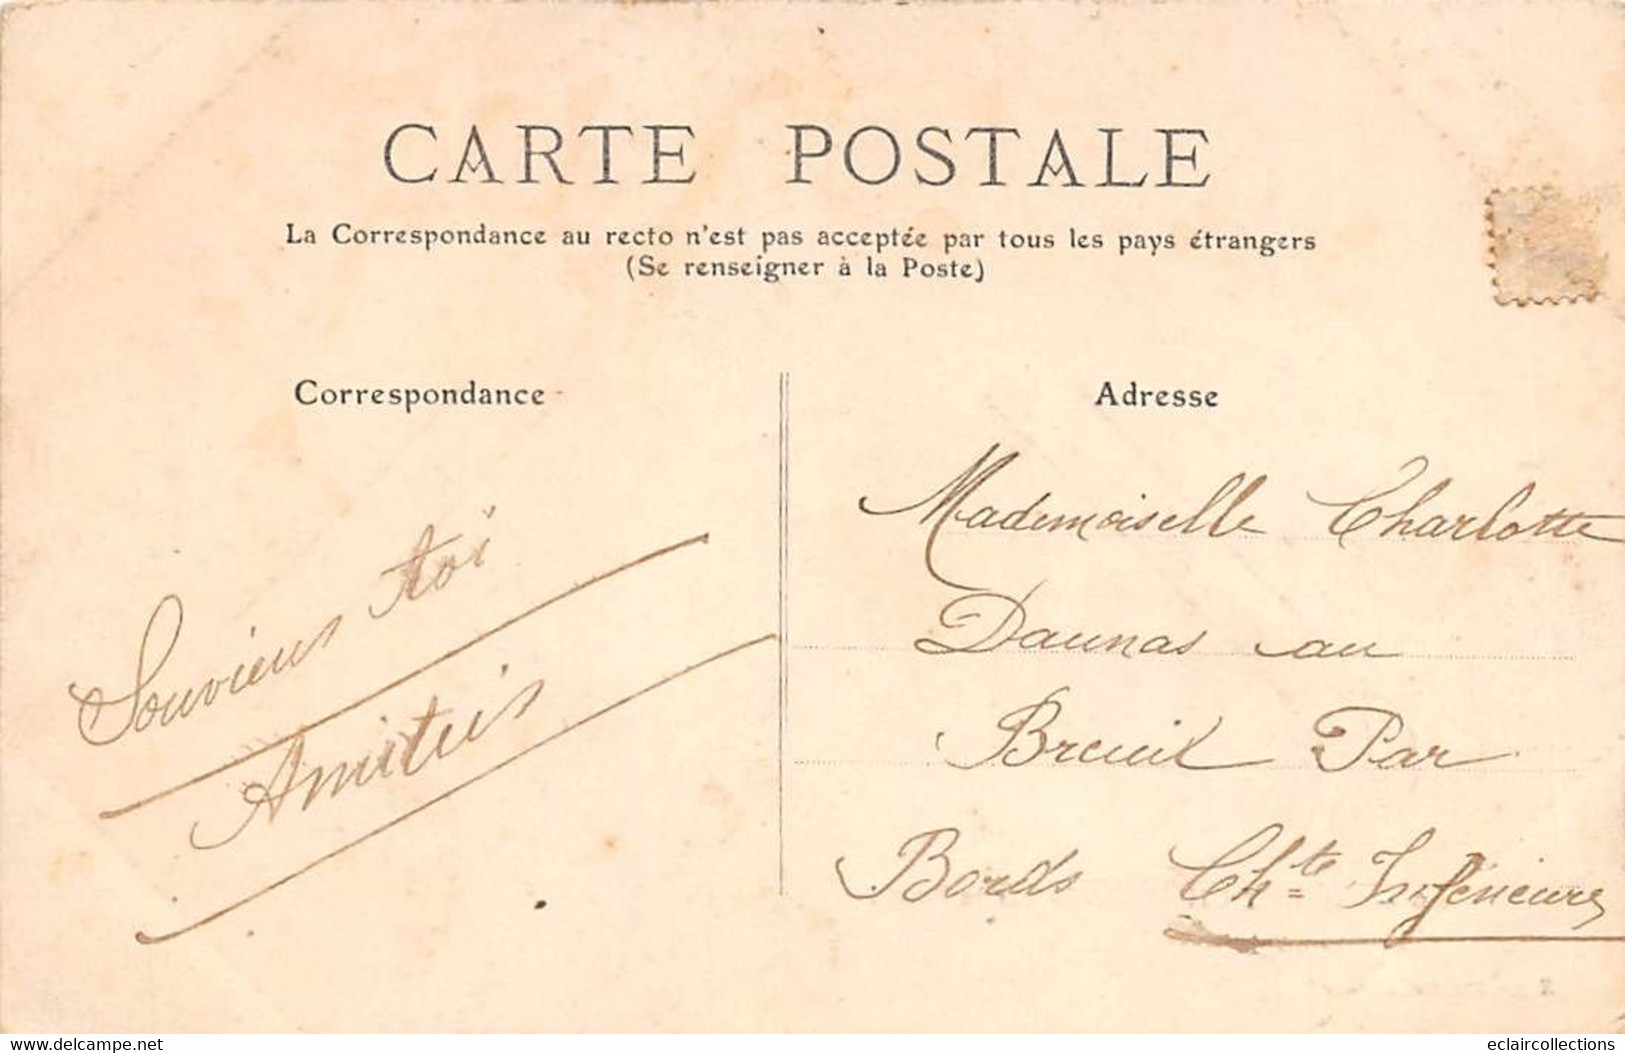 CARTE POSTALE
La Correspondance au recto n'est pas acceptée par tous les pays étrangers
(Se renseigner à la Poste)
Correspondance
Souviens toi
Amitiés
Adresse
Mademoiselle Charlotte
Daunas au
Breuil Par
Bords Chte Inférieure
www.delcampe.net
eclaircollections